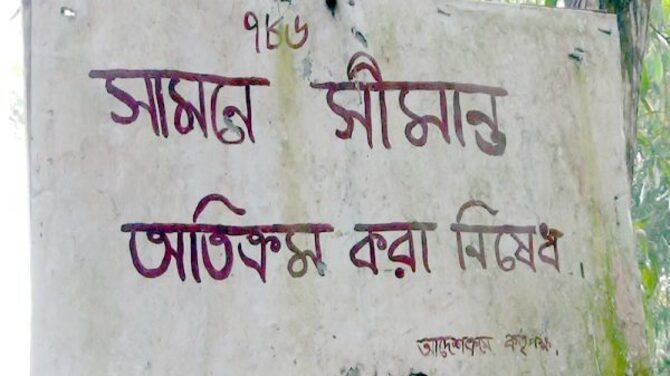 ৭৮৬
সামনে সীমান্ত
অতিক্রম করা নিষেধ.
আদেশক্রমে কর্তৃপক্ষ.